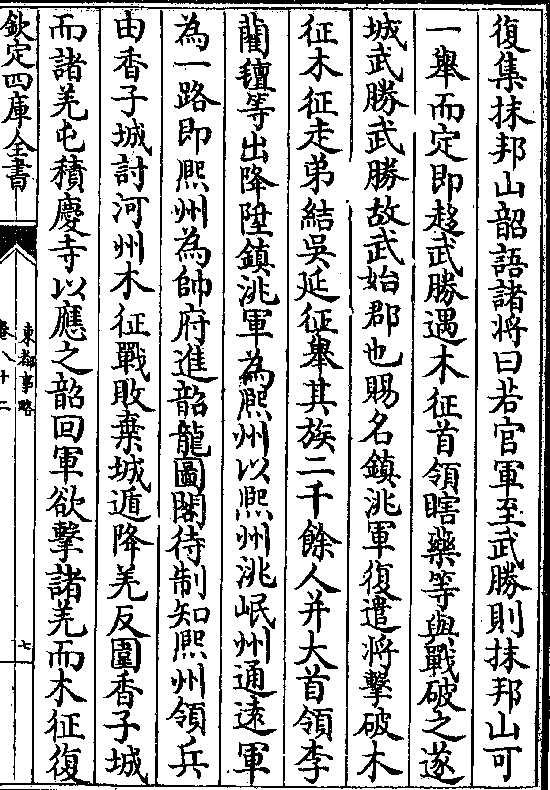 復集抹邦山韶語諸將曰若官軍至武勝則抹邦山可
一舉而定即趍武勝遇木征首領瞎藥等與戰破之遂
城武勝武勝故武始郡也賜名鎮洮軍復遣將擊破木
征木征走弟結吳延征舉其族二千餘人并大首領李
藺氊等出降陞鎮洮軍為熈州以熈州洮岷州通遠軍
為一路即熈州為帥府進韶龍圖閣待制知熈州領兵
由香子城討河州木征戰敗棄城遁降羌反圍香子城
而諸羌屯積慶寺以應之韶回軍欲擊諸羌而木征復
欽定四庫全書
東都事略
卷八十二
七